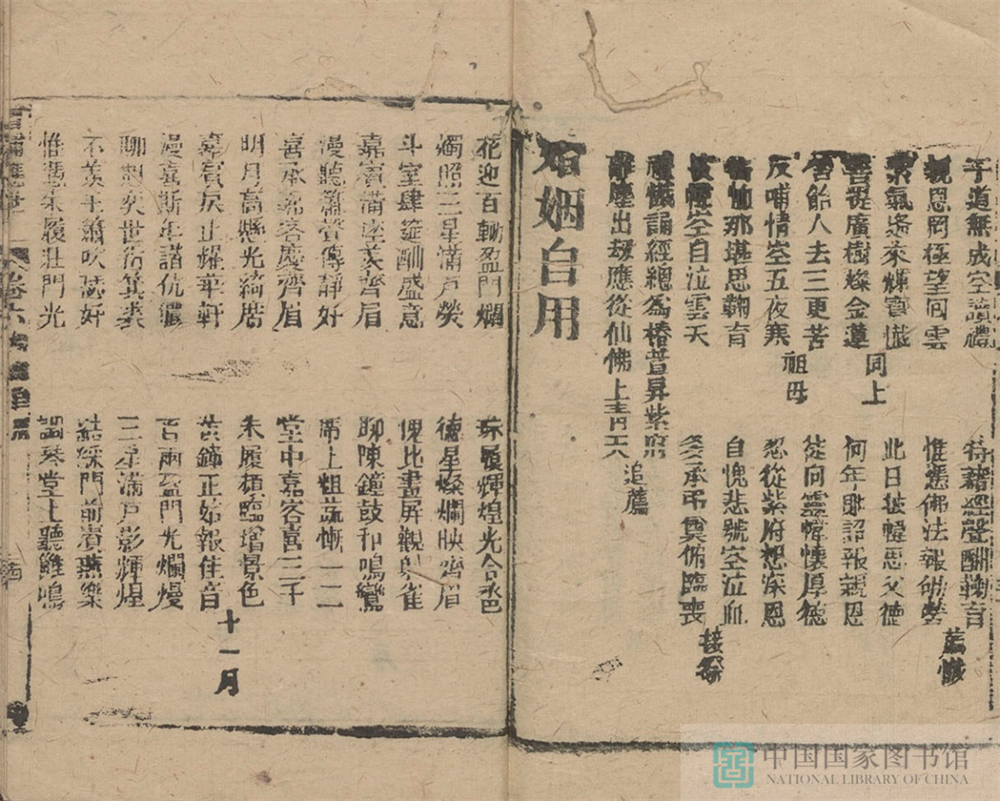 子道無成空讀禮
特藉經聲酬鞠育
親恩罔極望何雲
惟憑佛法報劬勞
薦懺
紫氣遙來輝寶懺
此日披幃思父德
菩提廣樹燦金蓮
同上
何年聊詔報親恩
含飴人去三更苦
從向靈幃懷厚德
反哺情空五夜寒
祖母
忽從紫府想深恩
那堪思鞠育
自愧悲號空泣血
幃空自泣雲天
多承弔奠俯臨喪
接祭
禮懺誦經總為椿萱昇紫府
離塵出劫應從仙佛上青天
追薦
婚姻自用
花迎百輛盈門爛
珠履輝煌光合巹
燭照三星滿戶熒
德星燦爛映齊眉
斗室肆筵酬盛意
愧比畫屏觀射雀
嘉賓滿座羨齊眉
聊陳鐘鼓和鳴鸞
漫聽簫聲傳靜好
席上粗蔬慚一二
喜承嘉客慶齊眉
堂中嘉客喜三千
明月高懸光綺席
朱履栖臨增景色
嘉賓戾止耀華軒
黃鐘正始報佳音
十一月
漫喜斯年諧伉儷
百兩盈門光爛熳
聊想奕世衍箕裘
三星滿戶影輝煌
不羨玉簫吹燕好
結綵門前賡燕樂
惟憑朱履壯門光
調琴堂上聽雞鳴
卷六